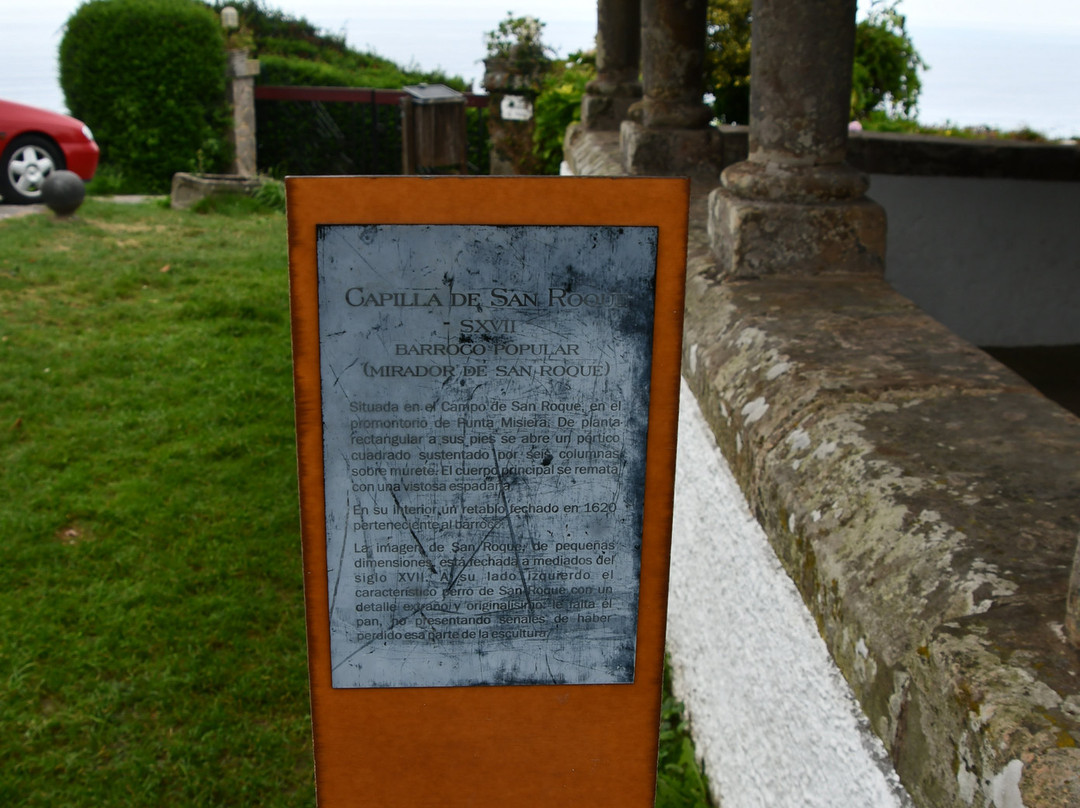 CAPILLA DE SAN ROQUE
SXVII
BARROCO POPULAR
(MIRADOR DE SAN ROQUE)
Situada en el Campo de San Roque, en el
promontorio de Punta Misiera. De planta
rectangular a sus pies se abre un pórtico
cuadrado sustentado por seis columnas
sobre murete. El cuerpo principal se remata
con una vistosa espadaña.
En su interior un retablo fechado en 1620
perteneciente al barroco.
La imagen de San Roque, de pequeñas
dimensiones, está fechada a mediados del
siglo XVII. A su lado izquierdo el
característico perro de San Roque con un
detalle extraño y originalísimo: le falta el
pan, no presentando señales de haber
perdido esa parte de la escultura.